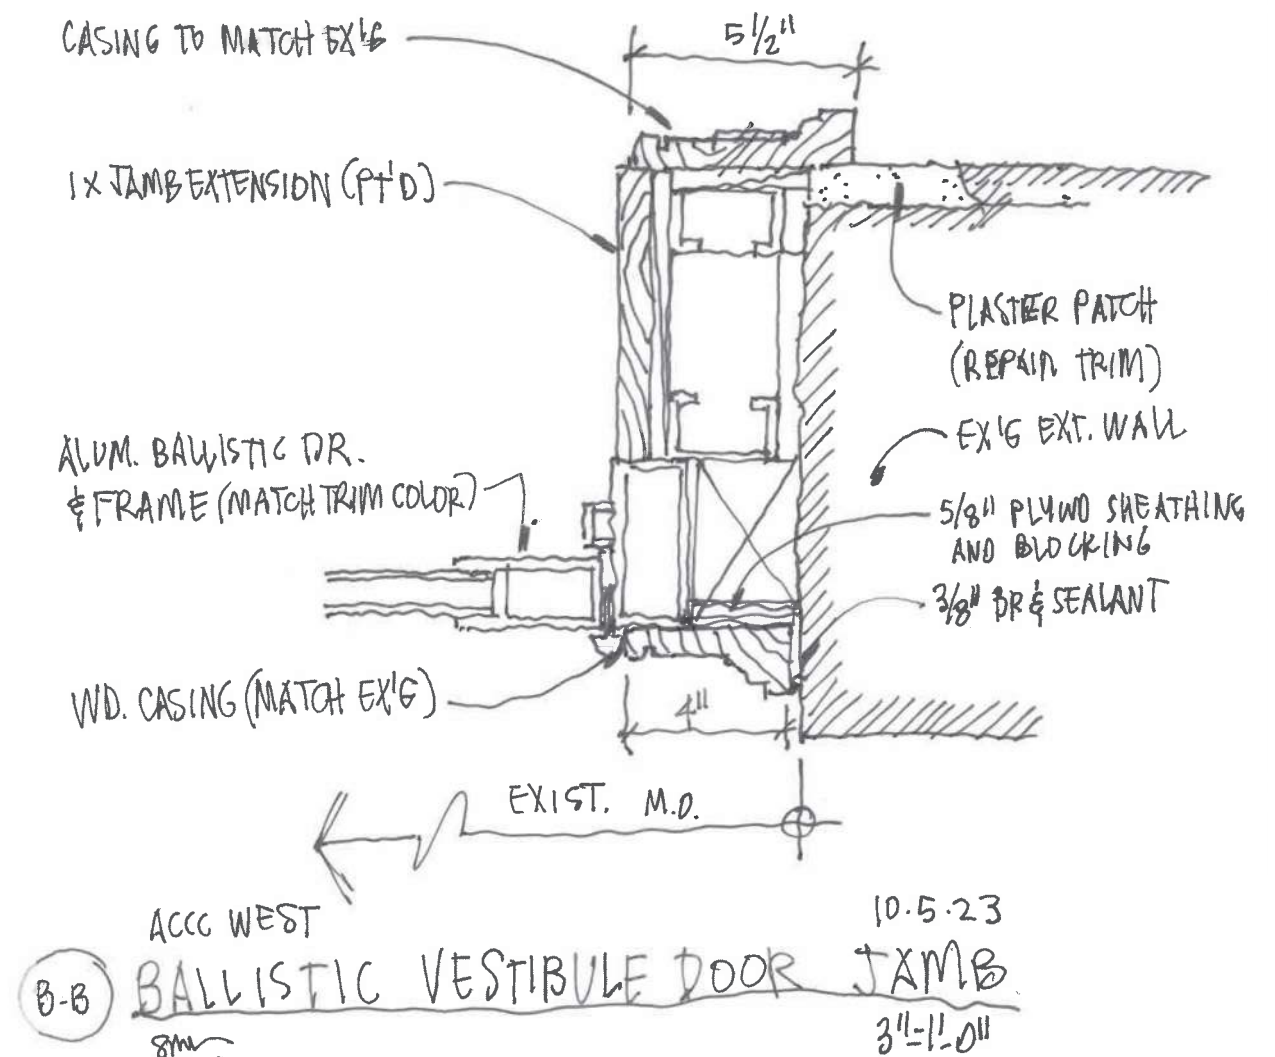 CASING TO MATCH EX'G
5 1/2"
1X JAMB EXTENSION (PT'D)
PLASTER PATCH
(REPAIR TRIM)
EX'G EXT. WALL
ALUM. BALLISTIC DR.
& FRAME (MATCH TRIM COLOR)
5/8" PLYWD SHEATHING
AND BLOCKING
3/8" BR & SEALANT
WD. CASING (MATCH EX'G)
4"
EXIST. M.O.
ACCC WEST
10.5.23
B-B
BALLISTIC VESTIBULE DOOR JAMB
3"-1'-0"